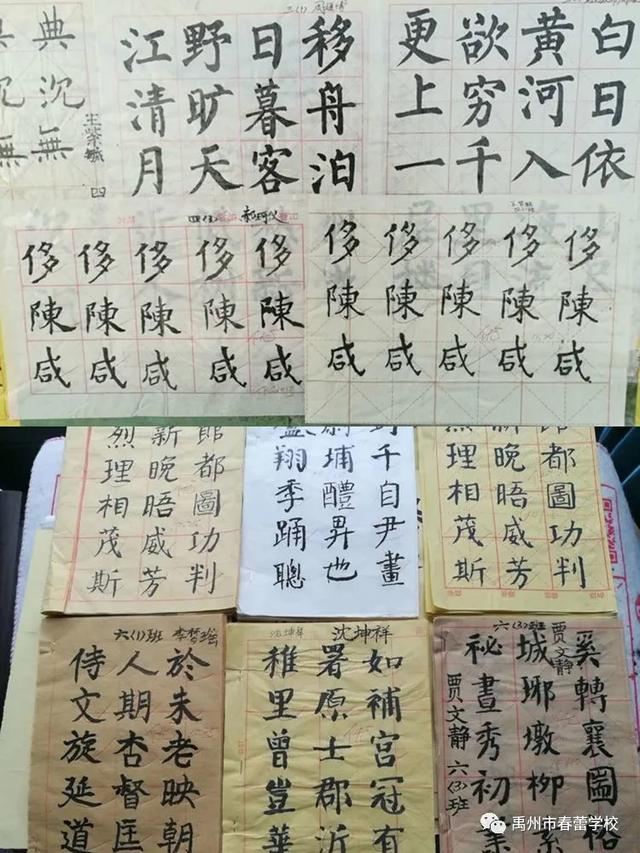 典沉無
四
移舟泊
日暮客
野旷天
江清月
白日依
黄河入
欲穷千
更上一
侈陳咸
侈陳咸
侈陳咸
侈陳咸
侈陳咸
侈陳咸
侈陳咸
侈陳咸
侈陳咸
侈陳咸
郎都圖功判
新晚晤威芳
烈理相茂斯
千自尹畫
埔醴昇也
翔季踊聰
郎都圖功判
新晚晤威芳
理相茂斯
六(1)班 李梦绘
於朱老映朝
人期杏督匡
侍文旋延道
沈坤祥
沈坤祥
如補宫冠有
署原士郡沂
稚里曾豈華
六(3)班
贾文静
奚轉襄圖俗
城琊墩柳系
秘晝秀初業
贾文静 六(3)班
禹州市春蕾学校